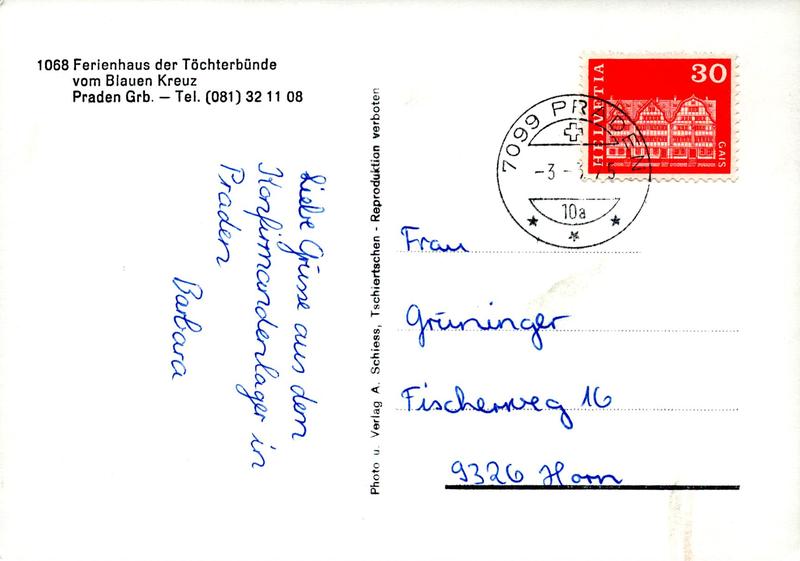 1068 Ferienhaus der Töchterbünde
vom Blauen Kreuz
Praden Grb. – Tel. (081) 32 11 08
Liebe Grüsse aus dem
Konfirmandenlager in
Praden
Barbara
Photo u. Verlag A. Schiess, Tschiertschen - Reproduktion verboten
HELVETIA
30
GAIS
7099 PRADEN
-3-
75
10a
Frau
Grüninger
Fischerweg 16
9326 Horn